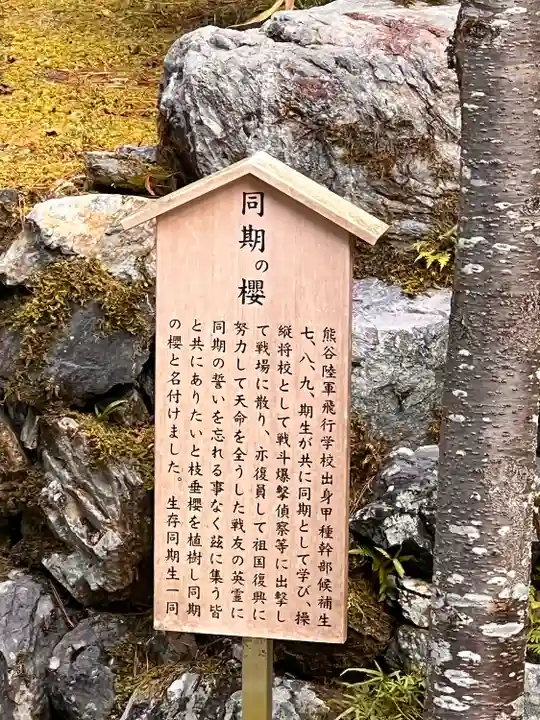 同期の櫻
熊谷陸軍飛行学校出身甲種幹部候補生
七、八、九、期生が共に同期として学び、操
縦将校として戦斗爆撃偵察等に出撃し
て戦場に散り、亦復員して祖国復興に
努力して天命を全うした戦友の英霊に
同期の誓いを忘れる事なく茲に集う皆
と共にありたいと枝垂櫻を植樹し同期
の櫻と名付けました。 生存同期生一同